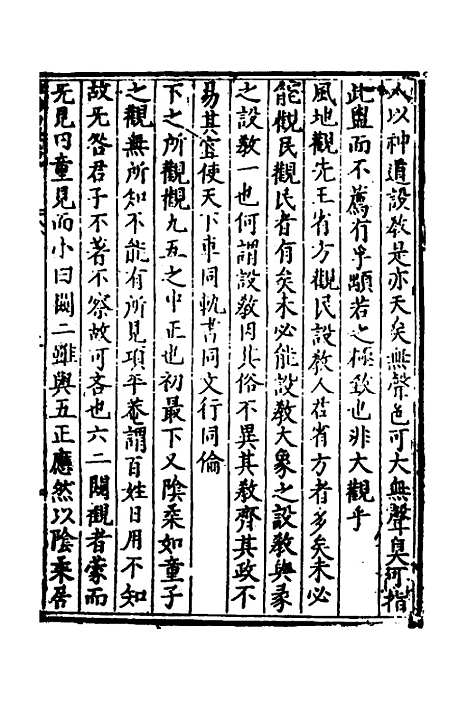 人以神道設教是亦天矣無聲色可大無聲臭可指
此盥而不薦有孚顒若之極致也非大觀乎
風地觀先王省方觀民設教人君省方者多矣未必
能觀民觀民者有矣未必能設教大象之設教與彖
之設教一也何謂設教因其俗不異其教齊其政不
易其宜使天下車同軌書同文行同倫
下之所觀觀九五之中正也初最下又陰柔如童子
之觀無所知不能有所見項平菴謂百姓日用不知
故无咎君子不著不察故可吝也六二闚觀者蒙而
无見内童見而小曰闚二雖與五正應然以陰柔居